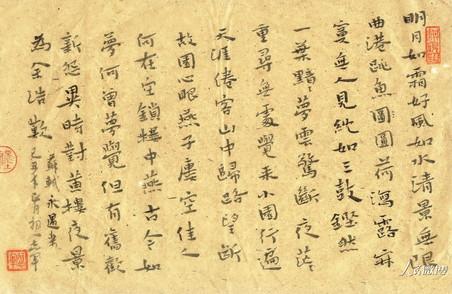 明月如霜好風如水清景無限
曲港跳魚圓圓荷瀉露寂
寞無人見紞如三鼓鏗然
一葉黯〻夢雲驚斷夜茫〻
重尋無處覺來小園行遍
天涯倦客山中歸路望斷
故園心眼燕子樓空佳人
何在空鎖樓中燕古今如
夢何曾夢覺但有舊歡
新怨異時對黃樓夜景
為余浩歎
蘇軾永遇樂
年正月初一